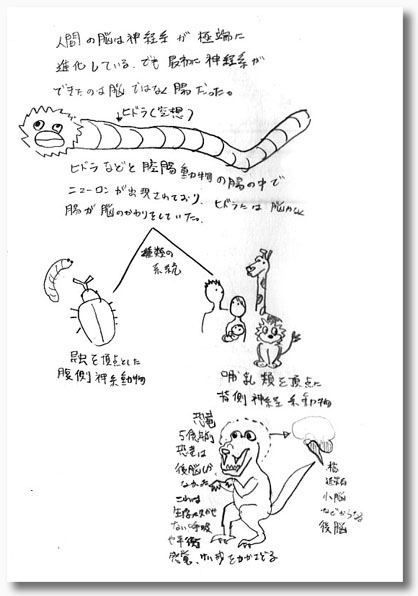 人間の脳は神経系が極端に
進化している。でも最初に神経系が
できたのは脳ではなく腸だった。
ヒドラ(空想)
ヒドラなどと腔腸動物の腸の中で
ニューロンが出現されており、ヒドラには脳がなく
腸が脳のかわりをしていた。
2種類の
系統
昆虫を頂点とした
腹側神系動物
哺乳類を頂点に
背側神経系動物
恐竜
恐竜は
後脳しか
なかった
これは
ない呼吸
や平衡
感覚、
をつかさどる
橋
延髄
小脳
などからなる
後脳